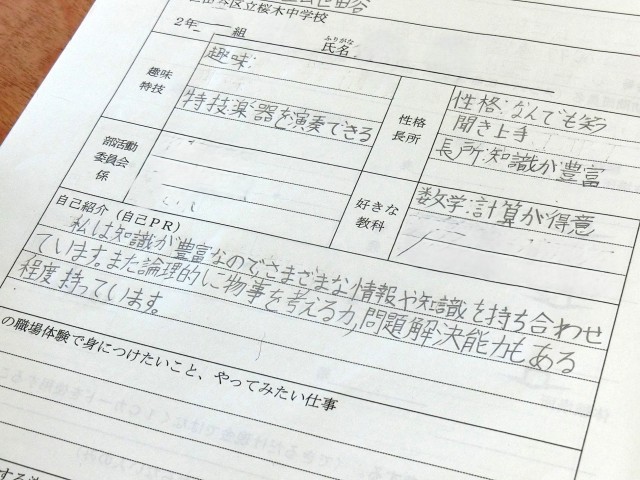 区立桜木中学校
2年 組
ふりがな
氏名
趣味
特技
趣味:
特技楽器を演奏できる
性格
長所
性格:なんでも笑う
聞き上手
長所:知識が豊富
部活動
委員会
係
好きな
教科
数学:計算が得意
自己紹介(自己PR)
私は知識が豊富なのでさまざまな情報や知識を持ち合わせ
ています。また論理的に物事を考える力,問題解決能力もある
程度持っています。
の職場体験で身につけたいこと、やってみたい仕事